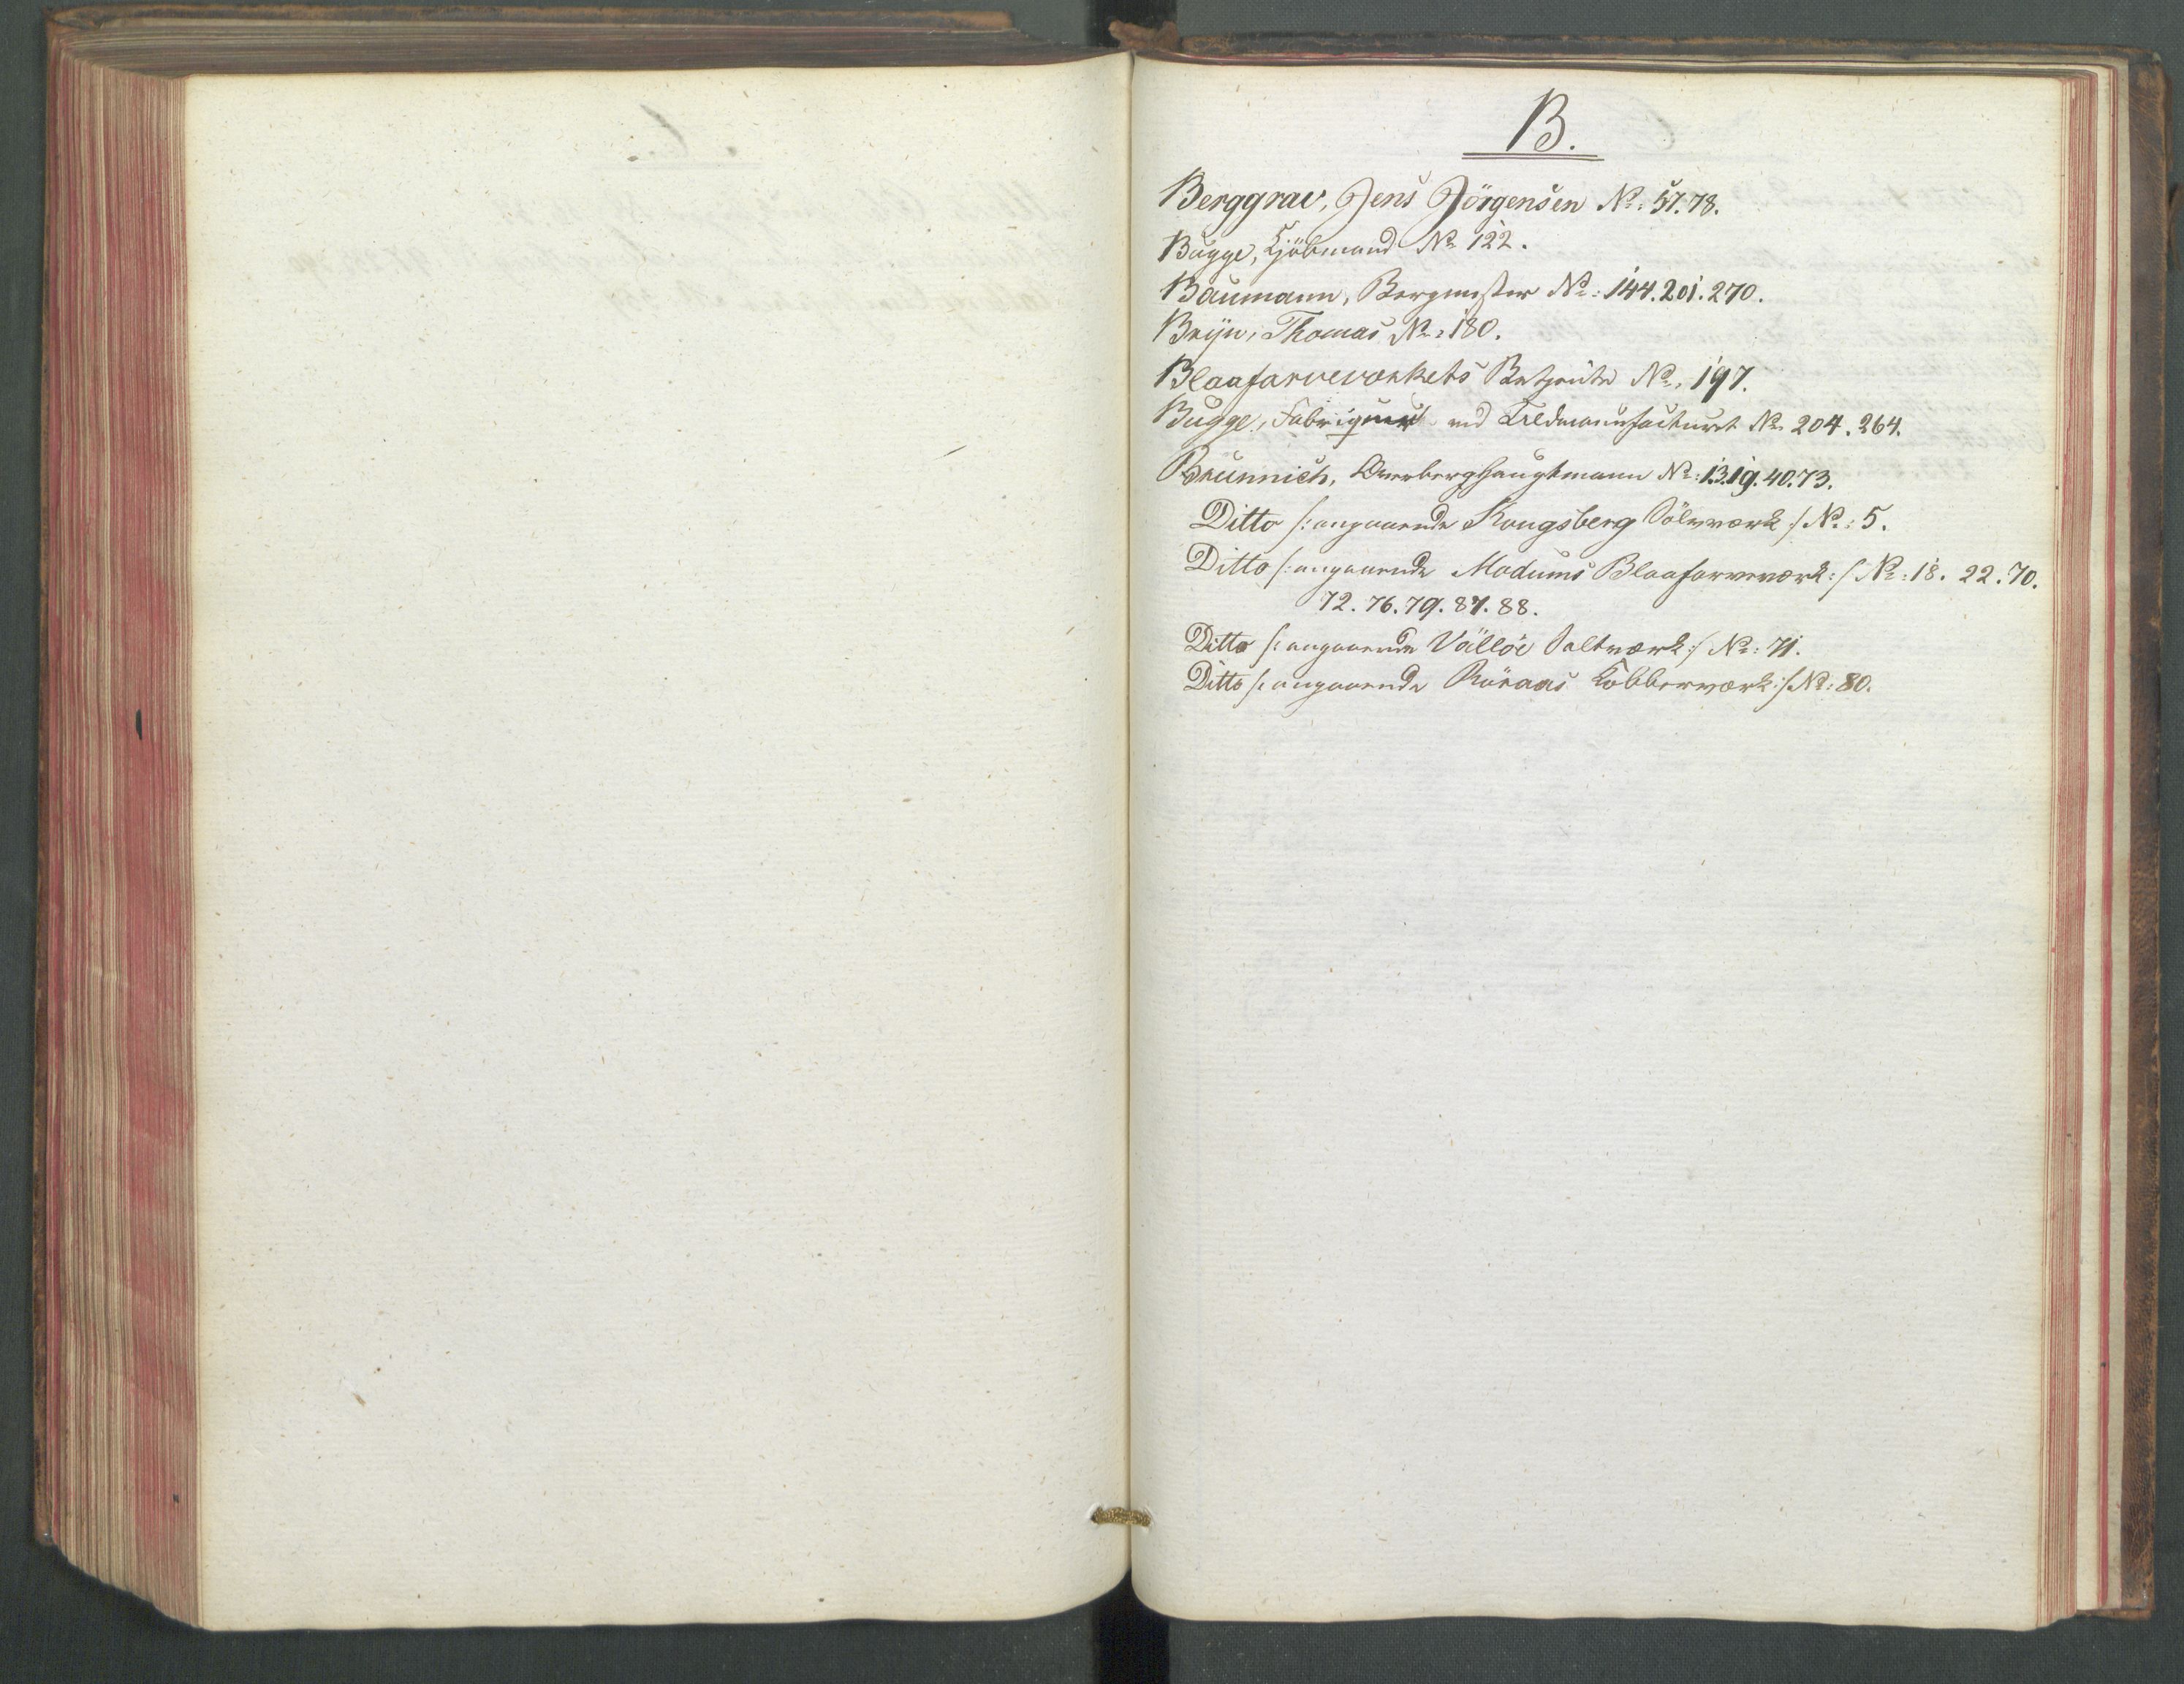 B.
Berggrav, Jens Jörgensen No: 57. 78.
Bugge, Kjöbmand No 122.
Baumann, Bergmester No: 144. 201. 270.
Bryn, Thomas No: 180.
Blaafarveværkets No: 197.
Bugge, ved No 204. 264.
Brünnich, Overberghauptmann No: 13. 19. 40. 73.
Ditto /: angaaende Kongsberg Sölvværk :/ No: 5.
Ditto /: angaaende Modums Blaafarveværk :/ No: 18. 22. 70.
72. 76. 79. 87. 88.
Ditto /: angaaende Vallöe Saltværk :/ No: 71.
Ditto /: angaaende Röraas Kobberværk :/ No: 80.